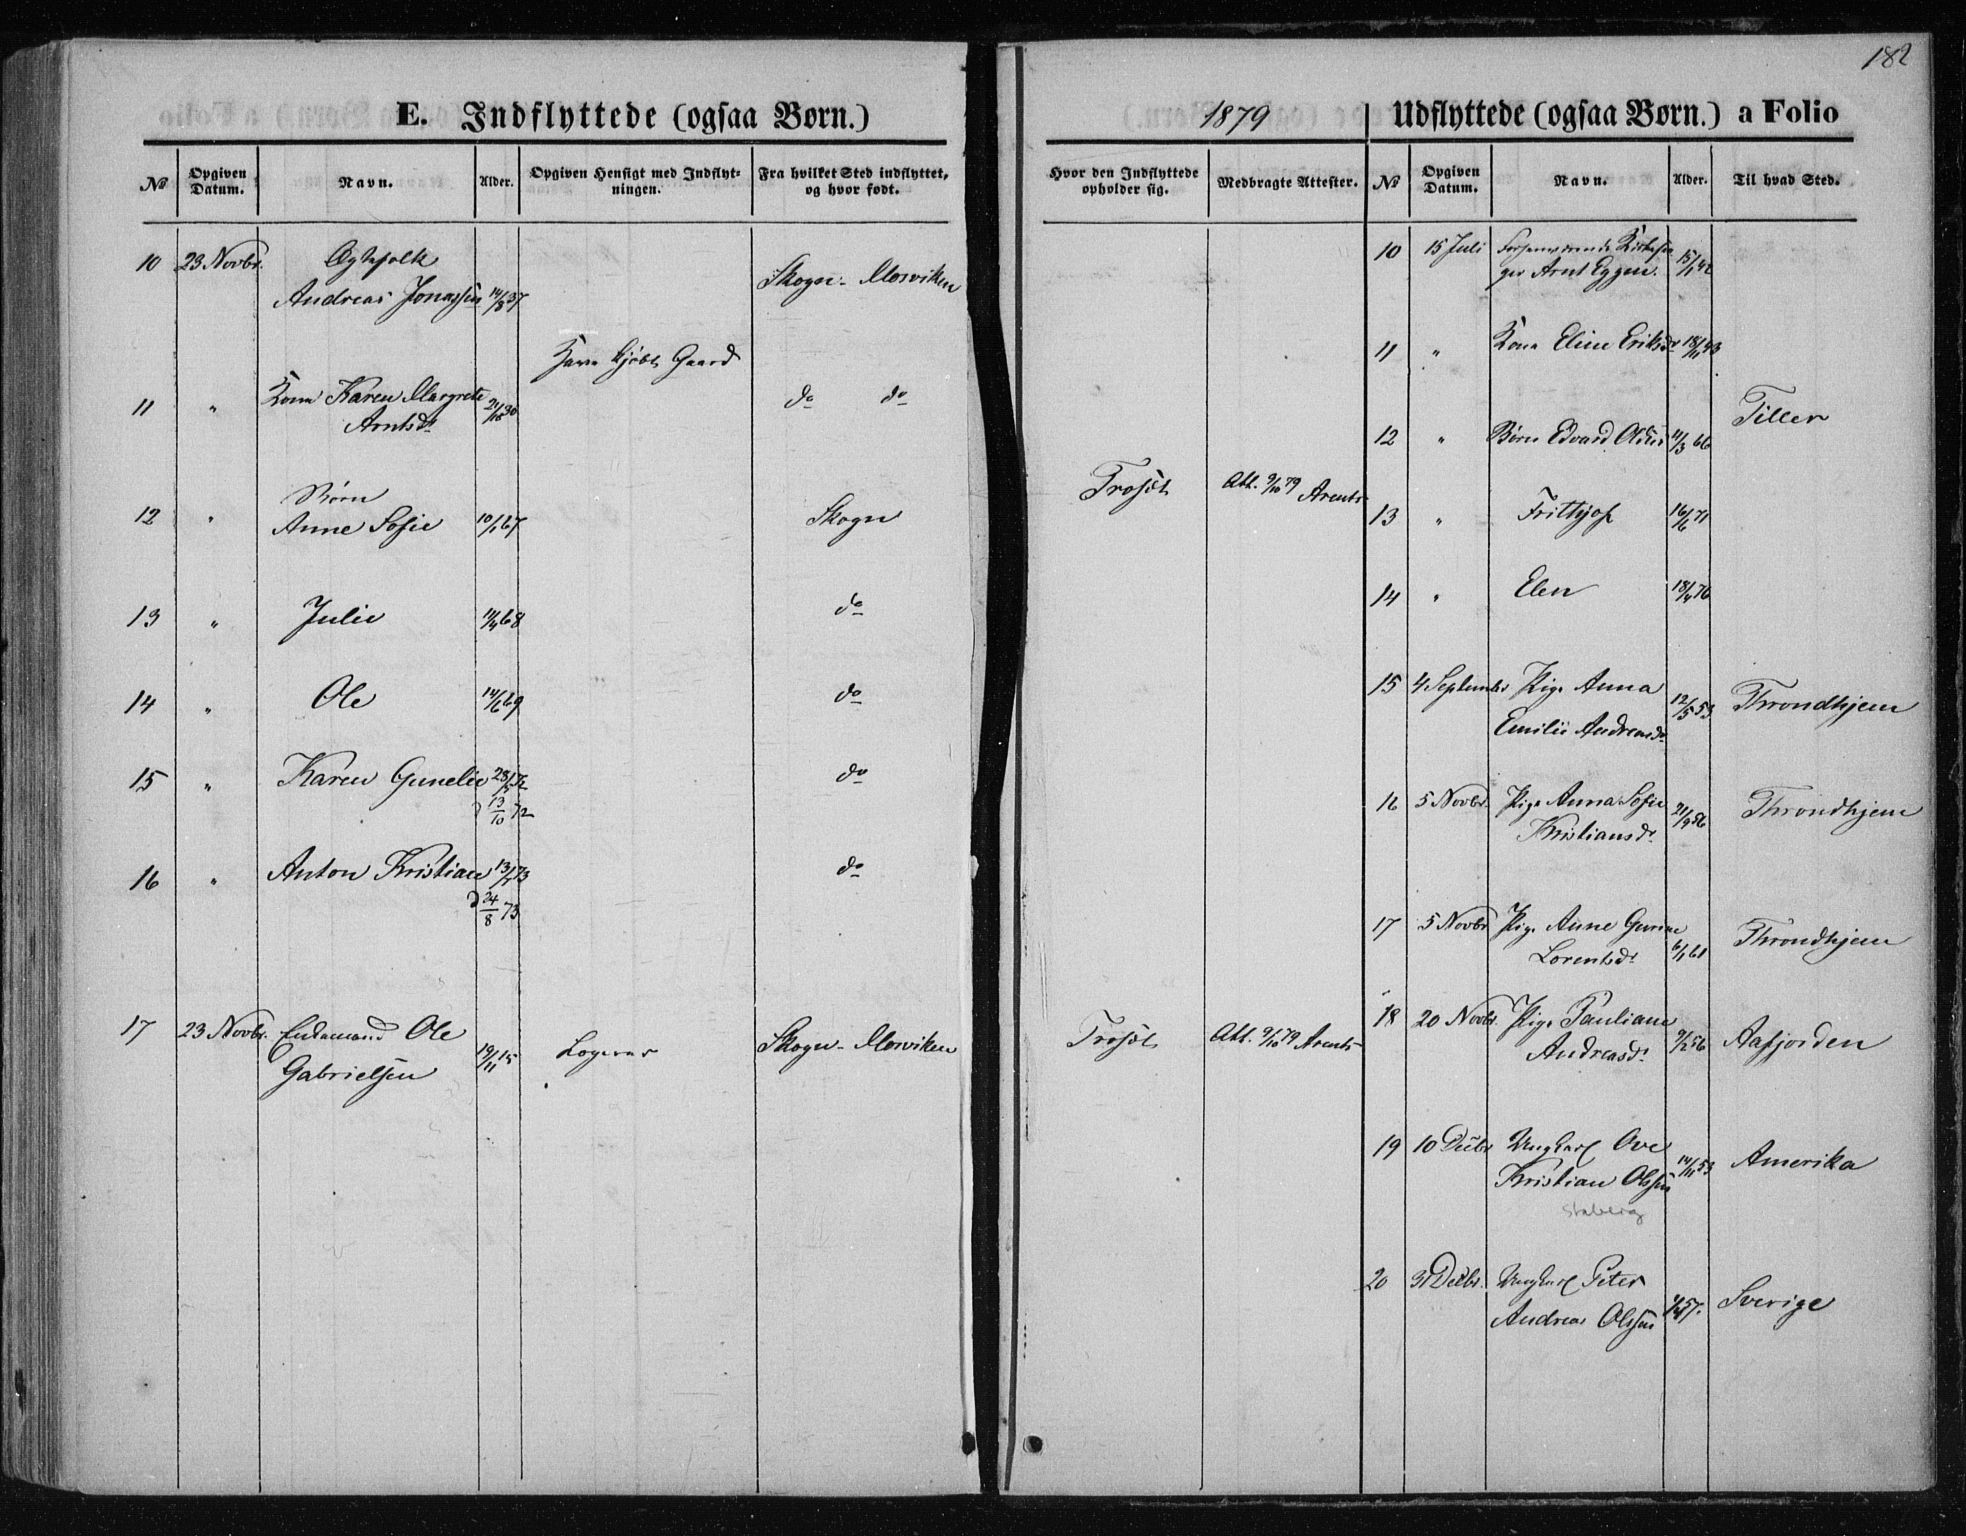 182
E. Indflyttede (ogsaa Børn.)
No
Opgiven Datum.
Navn.
Alder.
Opgiven Hensigt med Indflyt-
ningen.
Fra hvilket Sted indflyttet,
og hvor født.
10 23 Novbr. Ægtefolk
Andreas Jonassen 14/8 37 Skogn - Mosviken
Have kjøbt Gaard
11 " Kone Karen Margrete
Arntsdr do do
12 " Børn
Anne Sofie 10/1 67 Skogn
13 " Julie 14/4 68 do
14 " Ole 14/6 69 do
15 " Karen Gunelie 28/5 72 do
13/10 72
16 " Anton Kristian 13/7 73 do
24/8 73
17 23 Novbr. Enkemand Ole
Gabrielsen 19/11 15 Logerer Skogn - Mosviken
1879
Hvor den Indflyttede
opholder sig.
Medbragte Attester.
Trøset Att. 9/10 79 Arents
Trøset Att. 9/10 79 Arents
Udflyttede (ogsaa Børn.) a Folio
No
Opgiven
Datum.
Navn.
Alder.
Til hvad Sted.
10 15 Juli Forhenværende Kirkesan
ger Arnt Eggen. 15/1 42
11 " Kone Eline Eriksdr 18/11 43
Tiller
12 " Børn Edvard 11/3 66
13 " Frithjof 16/6 71
14 " Elen 18/4 76
15 4 Septembr Pige Anna
Emilie Andreasdr 12/5 53 Throndhjem
16 5 Novbr. Pige Anna Sofie
Kristiansdr 21/9 56 Throndhjem
17 5 Novbr Pige Anne Gurine
Lorentsdr 6/1 61 Throndhjem
18 20 Novbr. Pige Pauliane
Andreasdr 9/2 56 Aafjorden
19 10 Decbr Ungkarl Ove
Kristian Olssen 14/11 53 Amerika
Staberg
20 31 Decbr. Ungkarl Peter
Andreas Olssen 57. Sverige